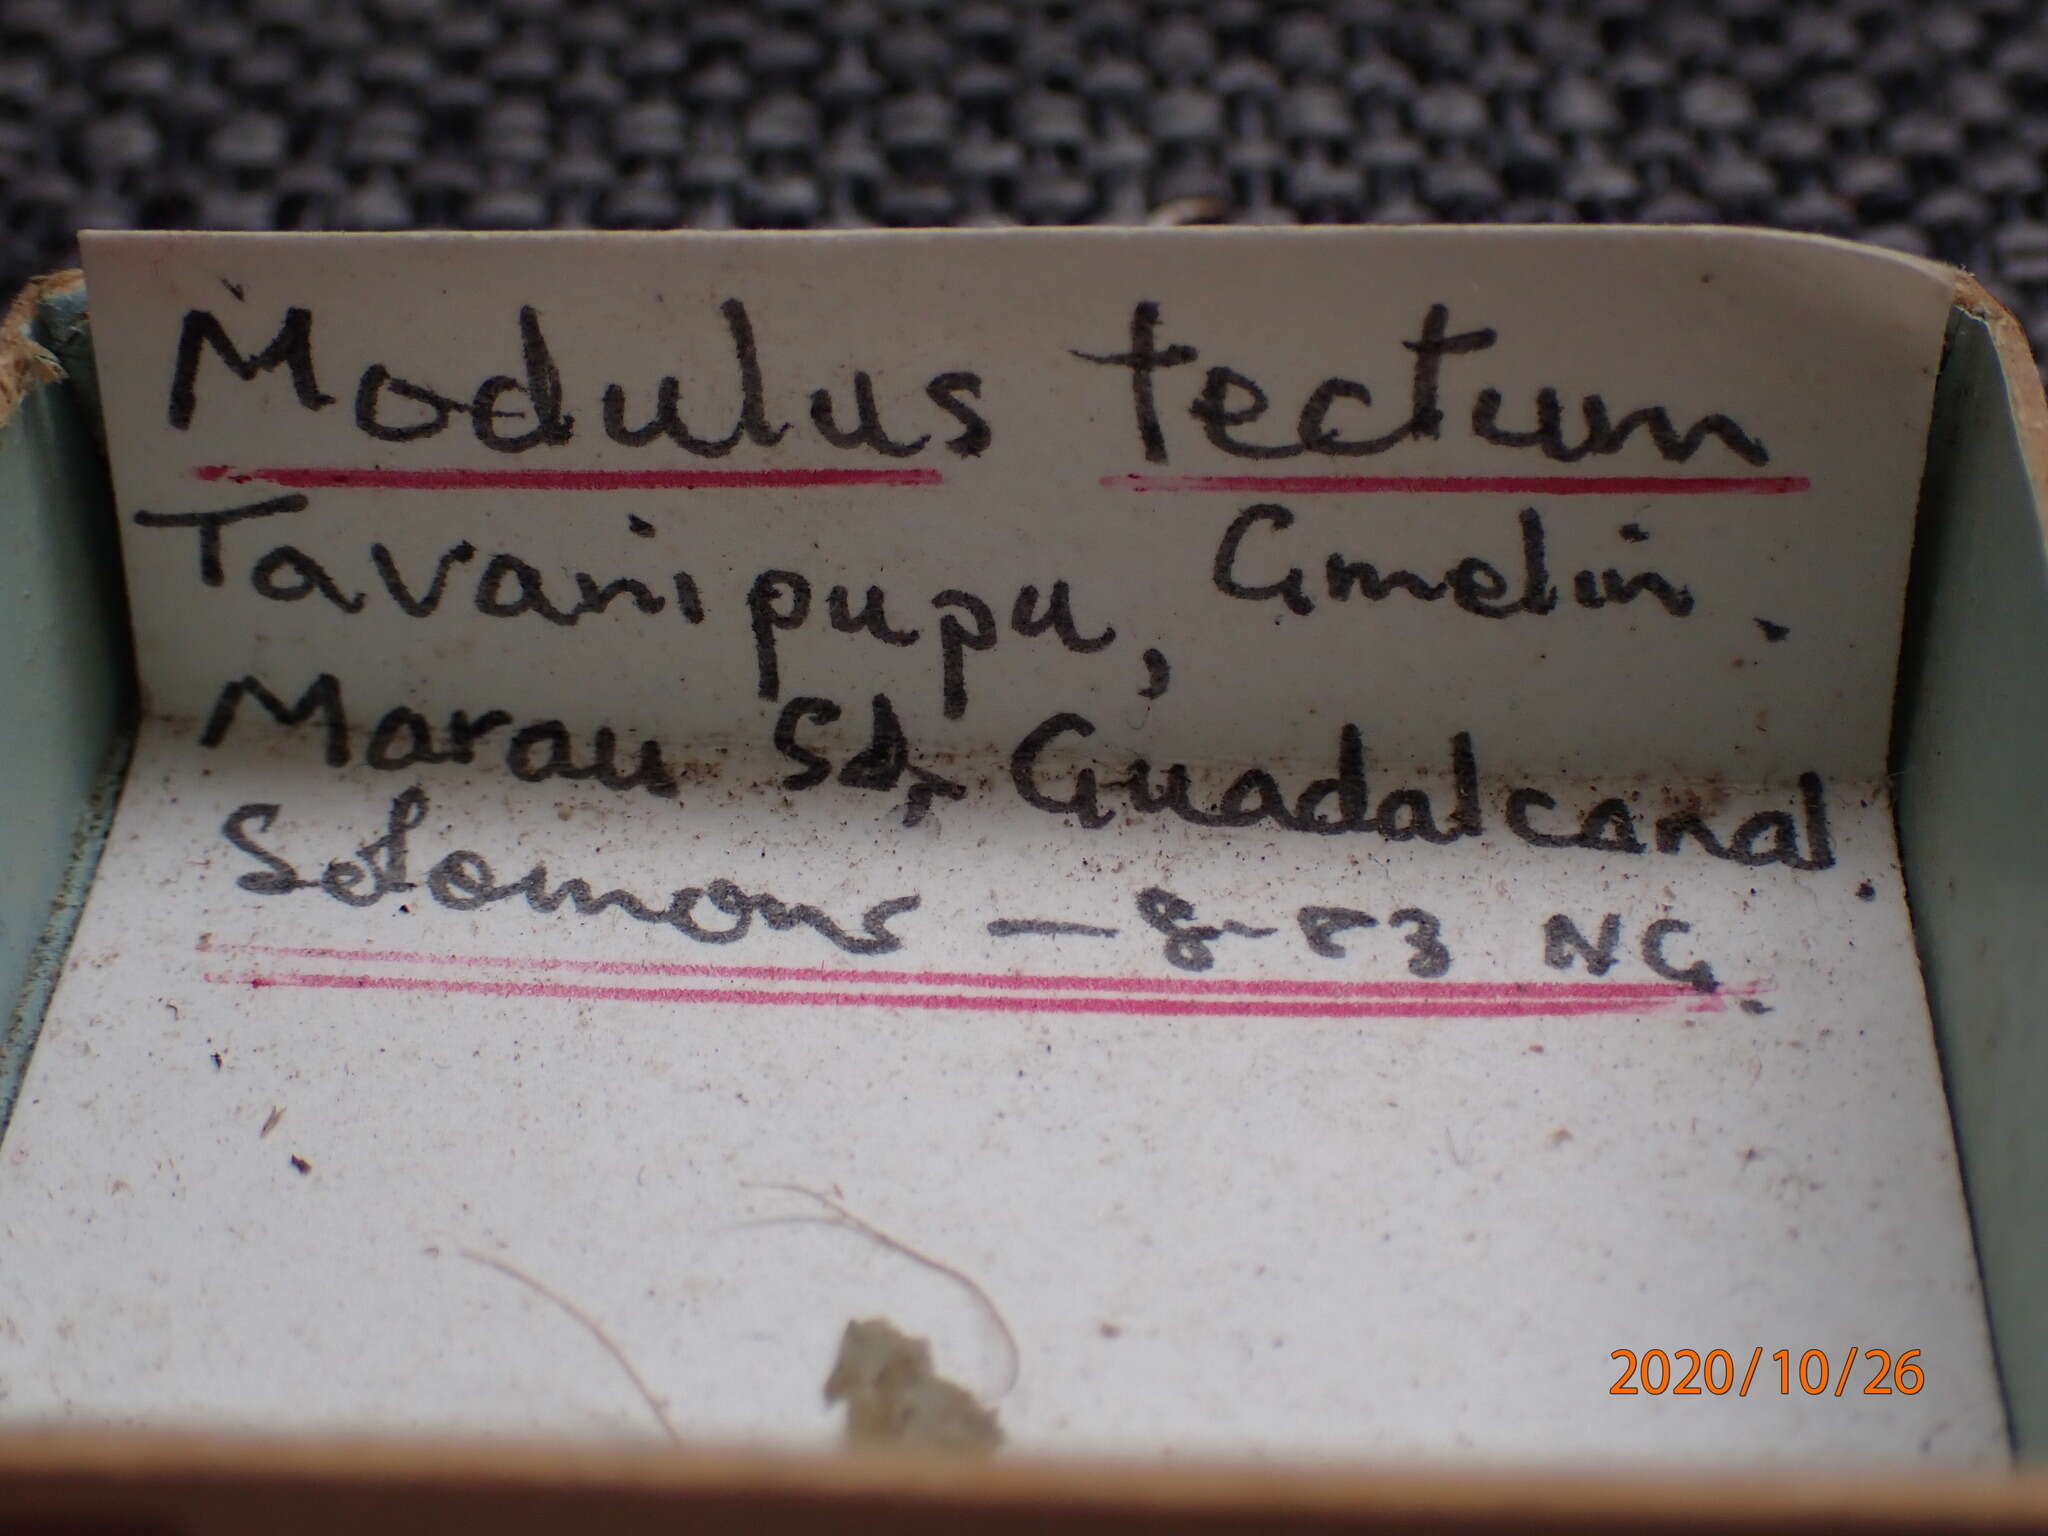 Modulus tectum
Tavanipupu, Gmelin.
Marau Sd, Guadalcanal.
Solomons - 8-83 NG.
2020/10/26